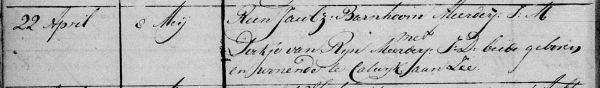 22 April 8 Meij Reen Jaulz: Barnhoorn Meerderj: J: M
met
Dirkje van Rijn Meerderj: J: D: beide geboren
en wonende te Catwijk aan Zee